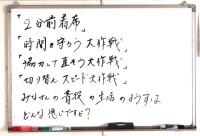 「2分前着席」
「時間を守ろう大作戦」
「協力して直そう大作戦」
「切り替えスピード大作戦」
みなさんの普段の生活のようすは
どんな感じですか?